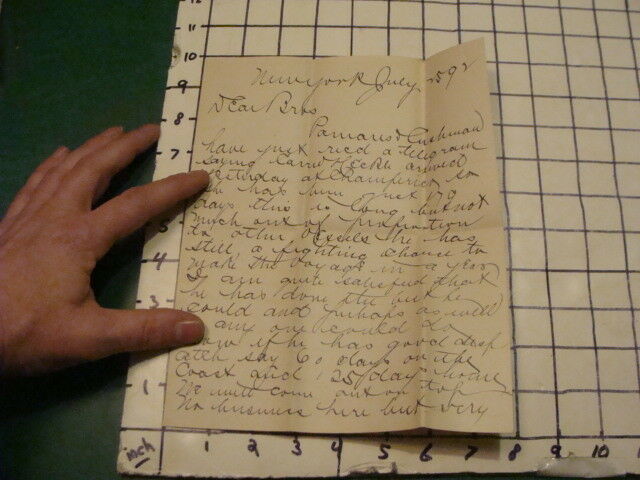 12
11
10
9
8
7
6
5
4
3
2
1
inch
1 2 3 4 5 6 7 8 9 10
New York July 92
Dear Bros
Cushman
have just recd a telegram
saying arrived
yesterday at so
he has been just 170
days this is long but not
much out of proportion
to other vessels he has
still a fighting chance to
make the voyage in a year
I am quite satisfied that
he has done the best he
could and perhaps as well
as any one could do
now if he has good disp
atch say 60 days on the
Coast and 125 days home
he will come out on top
No business here but very